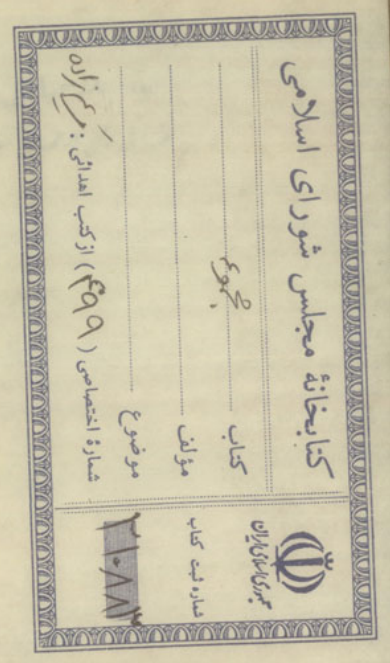 کتابخانهٔ مجلس شورای اسلامی
کتاب مجموعه
مؤلف
موضوع
شمارهٔ اختصاصی ( ۴۹۹ ) از کتب اهدائی :
جمهوری اسلامی ایران
شماره ثبت کتاب
۲۱۰۸۸۳